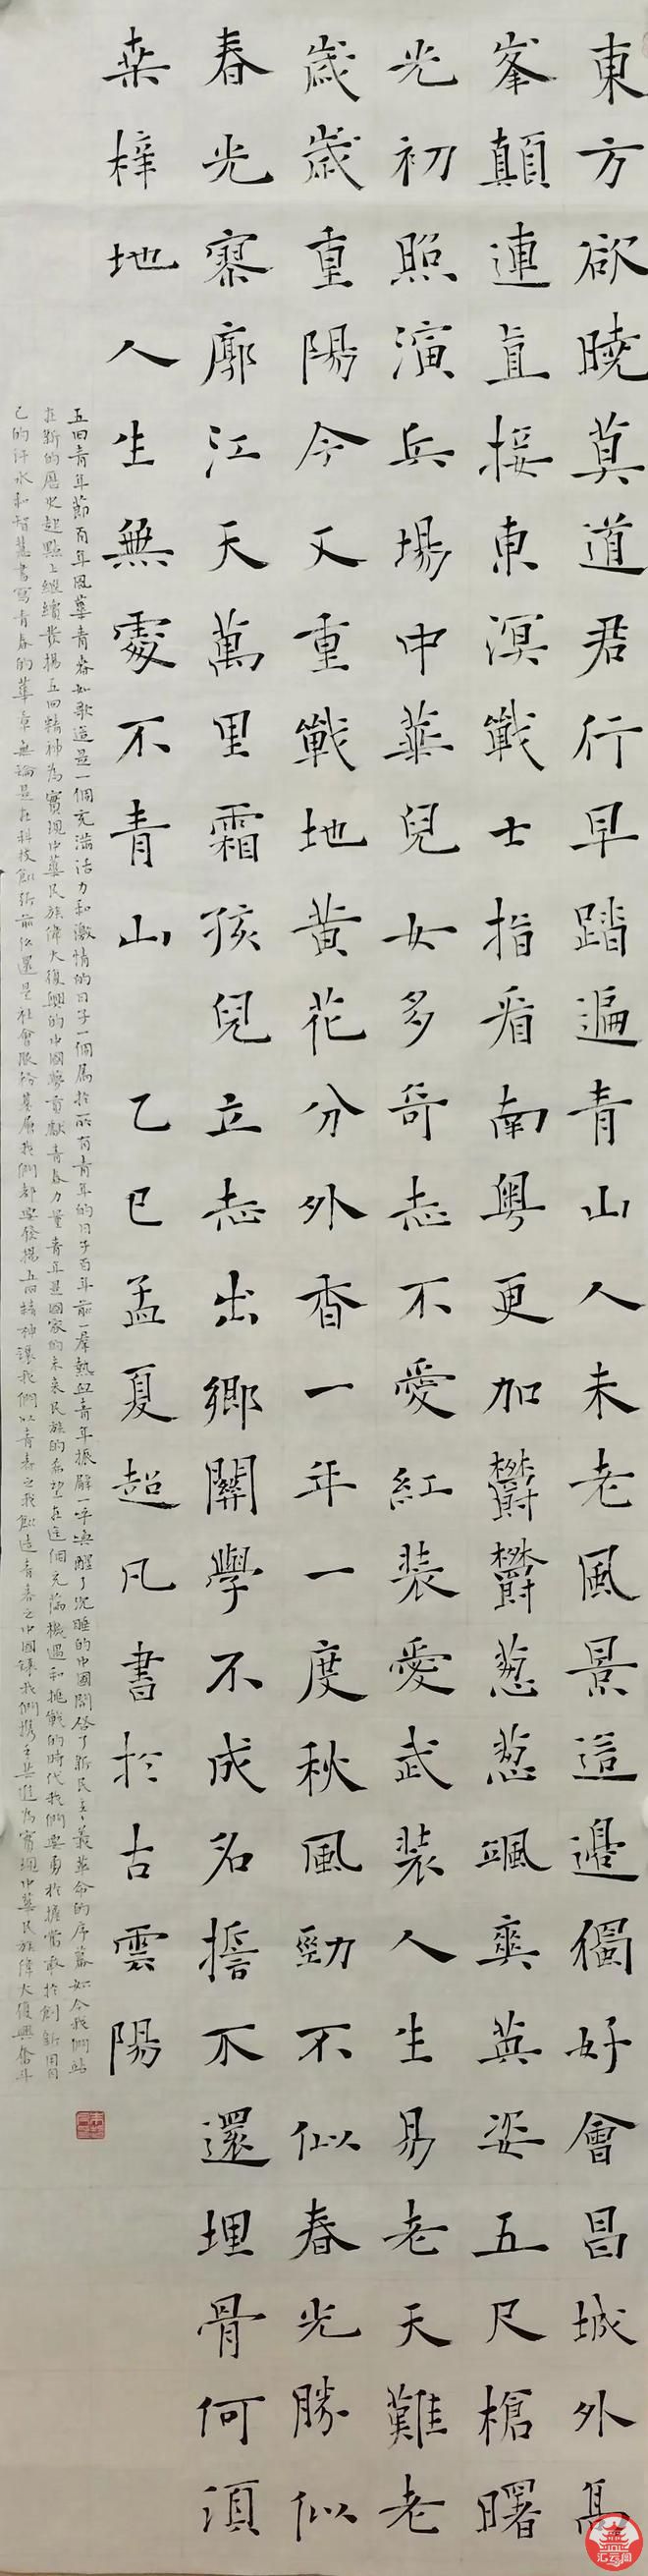 東方欲曉莫道君行早踏遍青山人未老風景這邊獨好會昌城外高
峯顛連直接東溟戰士指看南粵更加鬱鬱蔥蔥颯爽英姿五尺槍曙
光初照演兵場中華兒女多奇志不愛紅裝愛武裝人生易老天難老
歲歲重陽今又重戰地黄花分外香一年一度秋風勁不似春光勝似
春光寥廓江天萬里霜孩兒立志出鄉關學不成名誓不還埋骨何須
桑梓地人生無處不青山 乙巳孟夏超凡書於古雲陽
五四青年節百年風華青春如歌這是一個充滿活力和激情的日子一個屬於所有青年的日子百年前一羣熱血青年振臂一呼喚醒了沉睡的中國開啓了新民主主義革命的序幕如今我們站
在新的歷史起點上繼續發揚五四精神為實現中華民族偉大復興的中國夢貢獻青春力量青年是國家的未來民族的希望在這個充滿機遇和挑戰的時代我們要勇於擔當敢於創新用自
己的汗水和智慧書寫青春的華章無論是在科技創新前沿還是社會服務基層我們都要發揚五四精神讓我們以青春之我創造青春之中國讓我們攜手共進為實現中華民族偉大復興奮斗
汇云阁